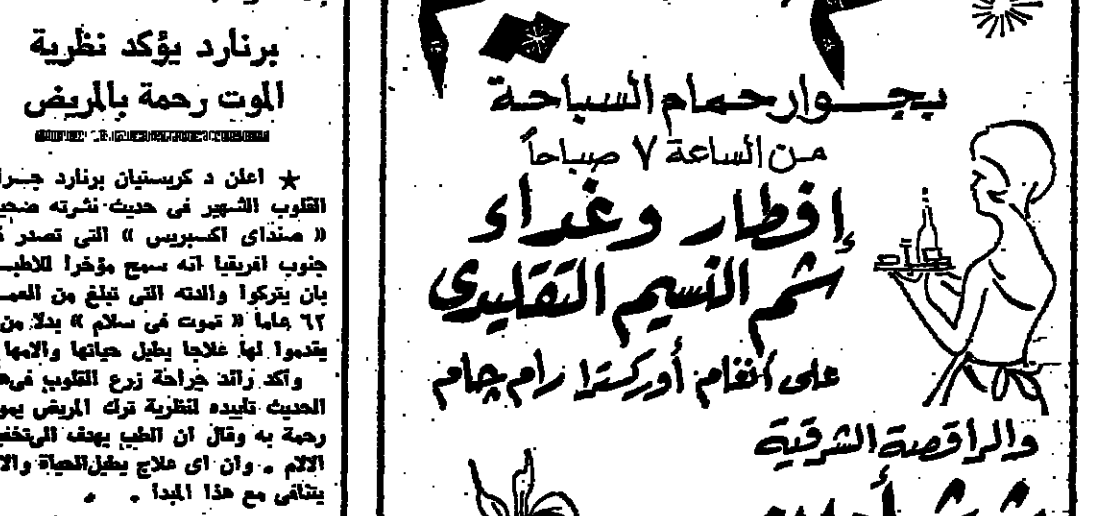 بجوار حمام السباحة
من الساعة ٧ صباحاً
إفطار وغداء
شم النسيم التقليدى
على أنغام أوركسترا رام چام
والراقصة الشرقية
برنارد يؤكد نظرية
الموت رحمة بالمريض
★ اعلن د كريستيان برنارد جـرا
القلوب الشهير فى حديث نشرته صحيـ
« صنداى اكسبريس » التى تصدر
جنوب افريقيا انه سمح مؤخرا للاطبـ
بان يتركوا والدته التى تبلغ من العمـ
٦٢ عاما « تموت فى سلام » بدلا من
يقدموا لها علاجا يطيل حياتها والامها
واكد رائد جراحة زرع القلوب فى هـ
الحديث تاييده لنظرية ترك المريض يمو
رحمة به وقال ان الطب يهدف الى تخفيـ
الالام . وان اى علاج يطيل الحياة والا
يتنافى مع هذا المبدا .